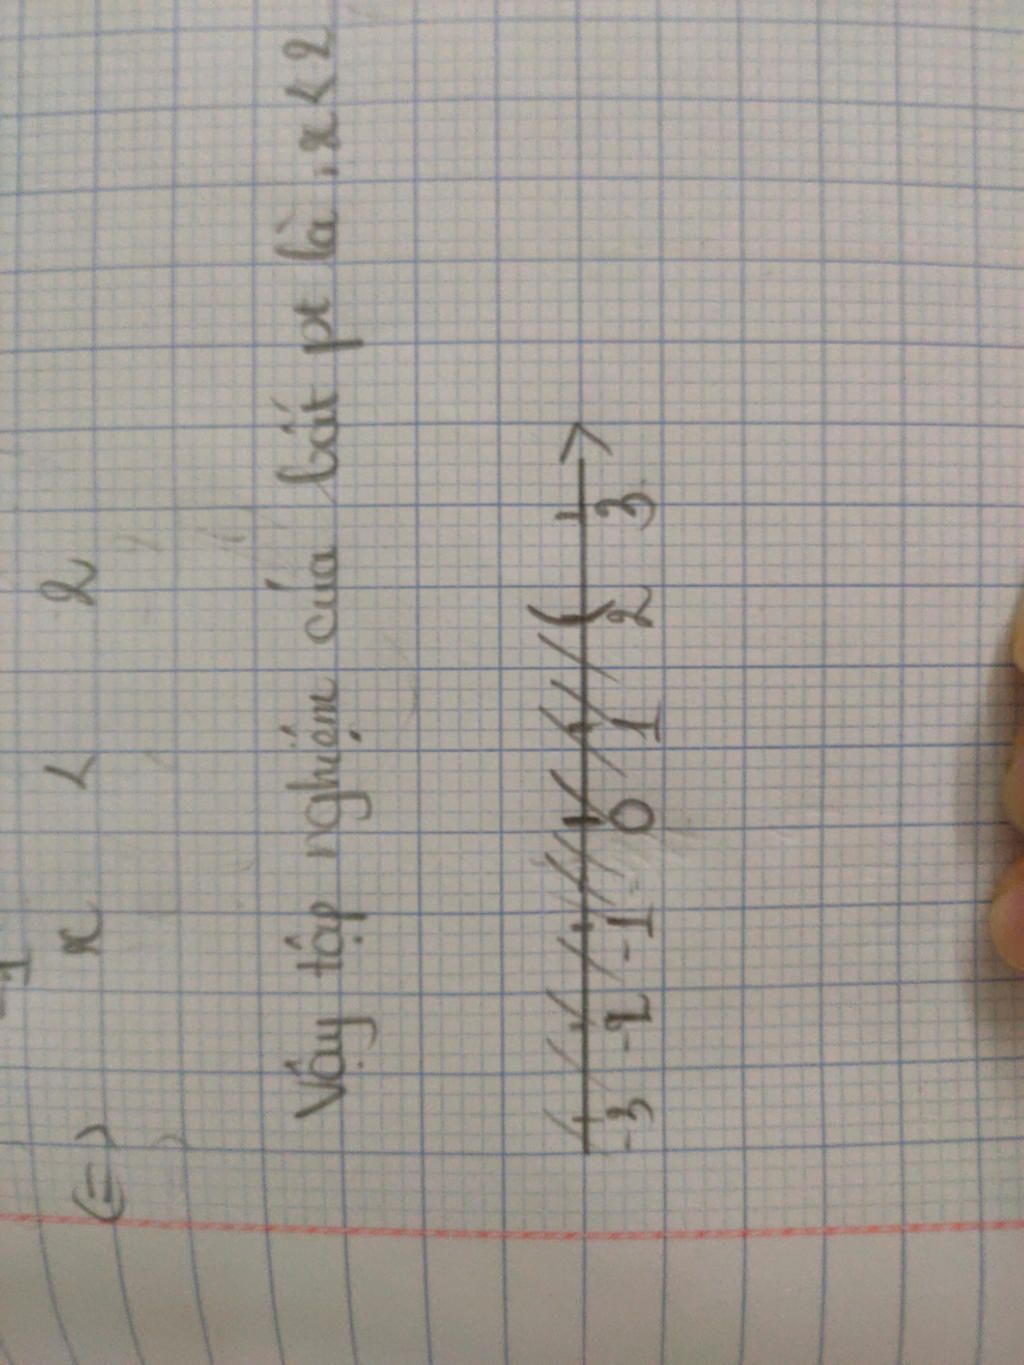 (=) x < 2
Vậy tập nghiệm của bất pt là : x < 2
-3 -2 -1 0 1 2 3